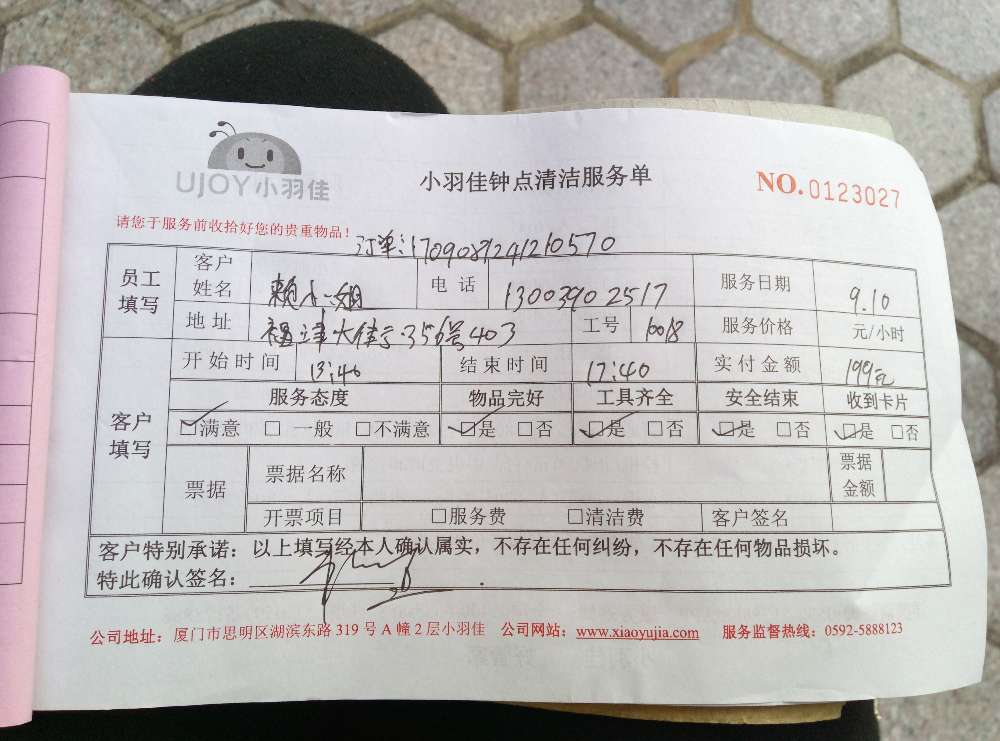 UJOY小羽佳
小羽佳钟点清洁服务单
NO.0123027
请您于服务前收拾好您的贵重物品！
订单：1709087241210570
员工填写 客户姓名 赖小姐 电话 13003902517 服务日期 9.10
地址 福津大街 356号403 工号 10018 服务价格 元/小时
客户填写 开始时间 13:40 结束时间 17:40 实付金额 199元
服务态度 物品完好 工具齐全 安全结束 收到卡片
☑满意 □一般 □不满意 ☑是 □否 ☑是 □否 ☑是 □否 ☑是 □否
票据 票据名称 票据金额
开票项目 □服务费 □清洁费 客户签名
客户特别承诺：以上填写经本人确认属实，不存在任何纠纷，不存在任何物品损坏。
特此确认签名：
公司地址：厦门市思明区湖滨东路 319 号 A 幢 2 层小羽佳 公司网站：www.xiaoyujia.com 服务监督热线：0592-5888123